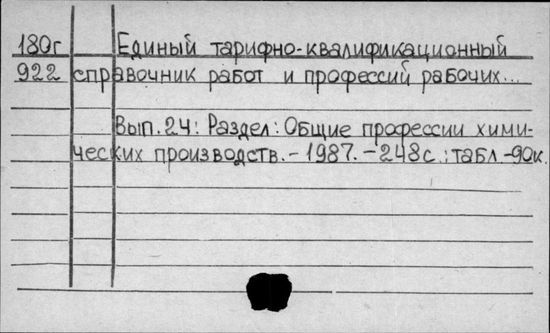 180г Единый тарифно-квалификационный
922 справочник работ и профессий рабочих...
Вып. 24: Раздел: Общие профессии хими-
ческих производств. - 1987. - 248с.: табл. - 90к.